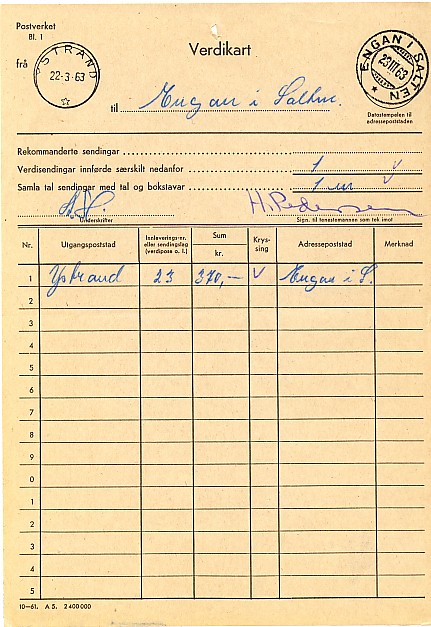 Postverket
Bl. 1
Verdikart
frå
YSTRAND
22-3-63
til Engan i Salten.
ENGAN I SALTEN
23III63
Datostempelen til
adressepoststaden
Rekommanderte sendingar
Verdisendingar innførde særskilt nedanfor 1 v
Samla tal sendingar med tal og bokstavar 1 en v
H. Pedersen
Underskrifter
Sign. til tenestemannen som tek imot
Nr. Utgangspoststad Innleverings-nr. eller sendingslag (verdipose o. l.) Sum kr. Krys-sing Adressepoststad Merknad
1 Ystrand 23 370,— V Engan i S.
2
3
4
5
6
7
8
9
0
1
2
3
4
5
10-61. A 5. 2 400 000